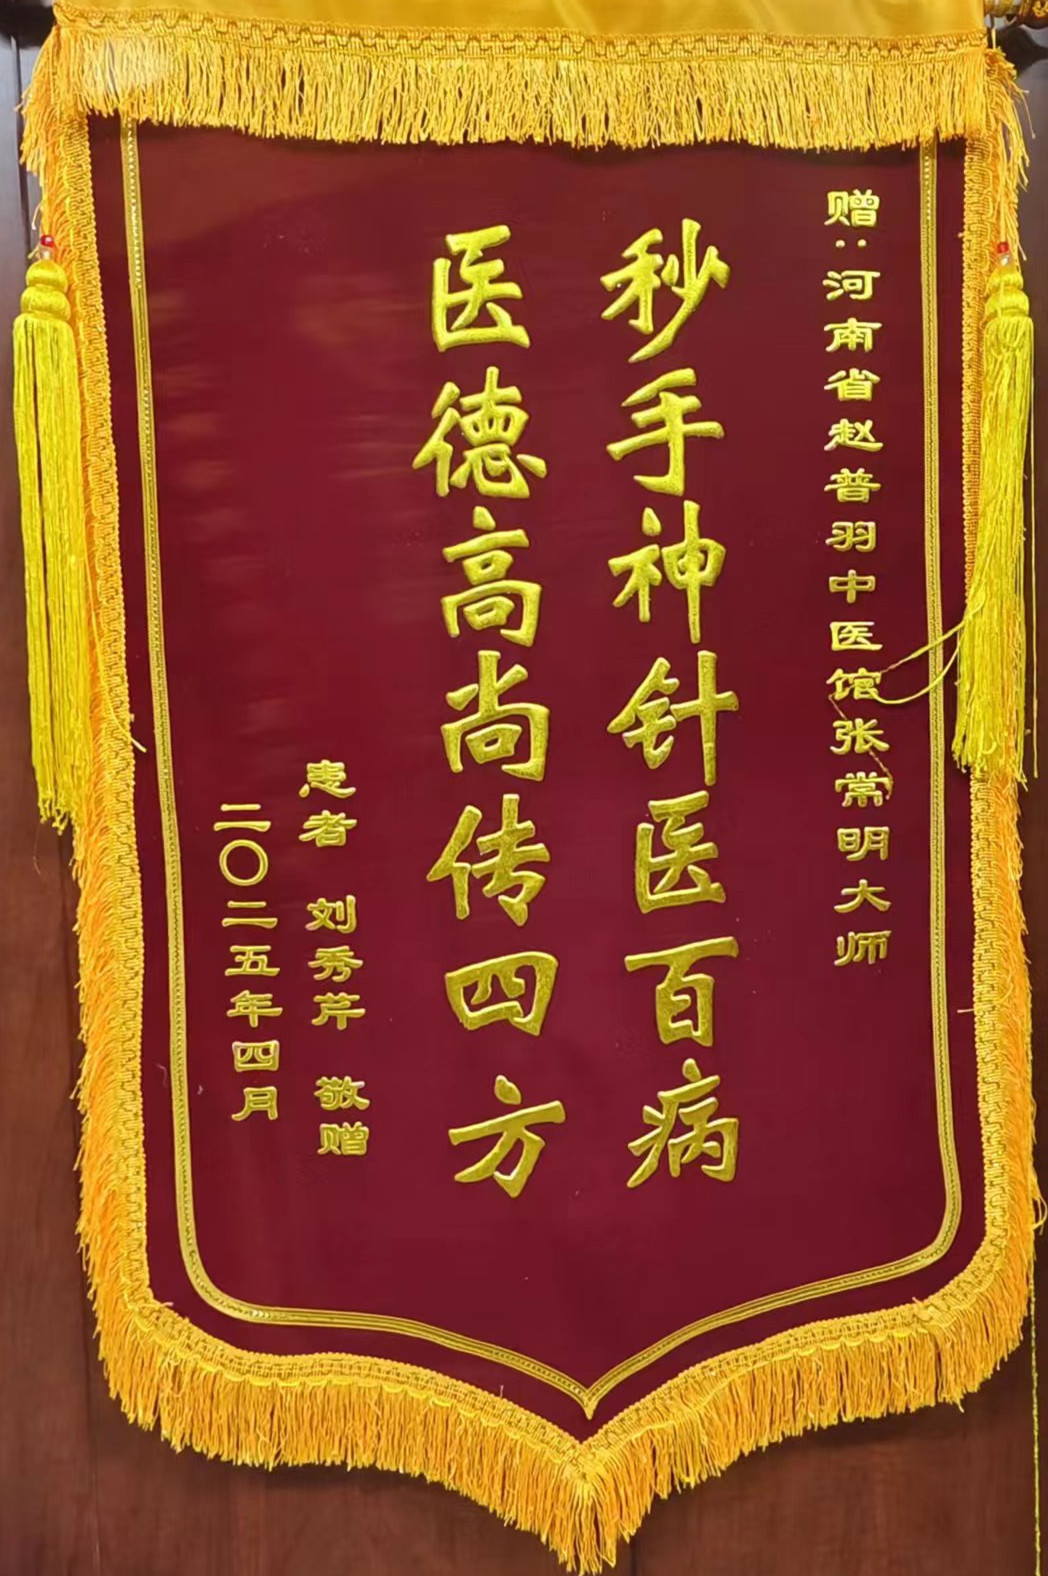 赠：河南省赵普羽中医馆张常明大师
秒手神针医百病
医德高尚传四方
患者 刘秀芹 敬赠
二〇二五年四月